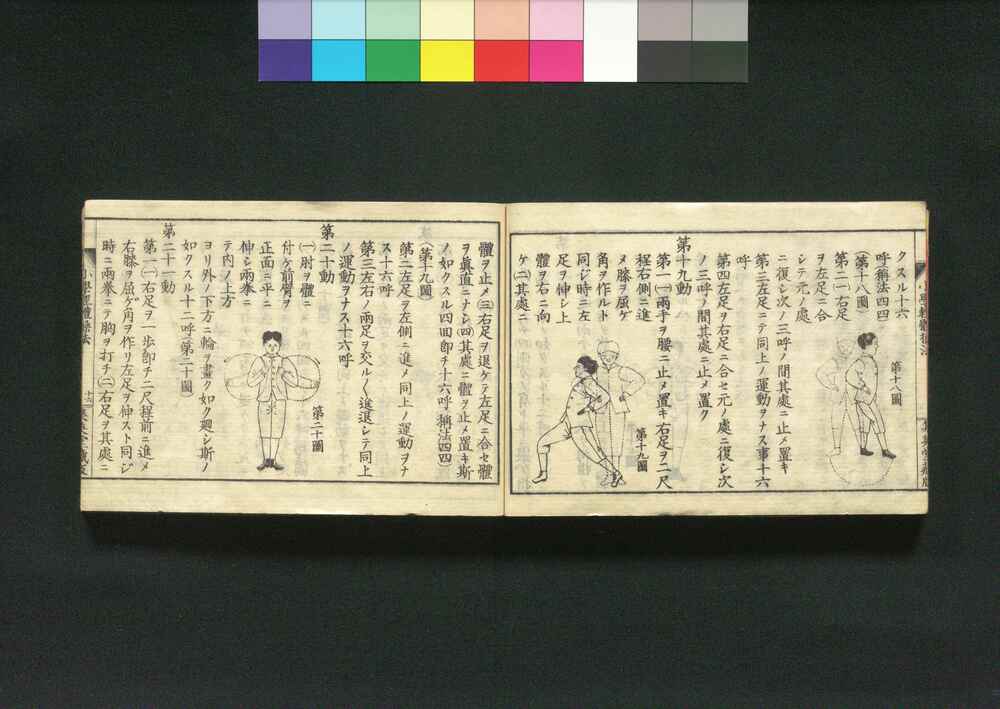 クスル十六
呼稱法四四
(第十八圖)
第二(一)右足
ヲ左足ニ合
シテ元ノ處
ニ復シ次ノ三呼ノ間其處ニ止メ置キ
第三左足ニテ同上ノ運動ヲナス事十六
呼
第四左足ヲ右足ニ合セ元ノ處ニ復シ次
ノ三呼ノ間其處ニ止メ置ク
第十九動
第一(一)兩手ヲ腰ニ止メ置キ右足ヲ二尺
程右側ニ進
メ膝ヲ屈ゲ
角ヲ作ルト
同ジ時ニ左
足ヲ伸シ上
體ヲ右ニ向
ケ(二)其處ニ
第十八圖
第十九圖
體ヲ止メ(三)右足ヲ退ケテ左足ニ合セ體
ヲ眞直ニナシ(四)其處ニ體ヲ止メ置キ斯
ノ如クスル四囬即チ十六呼稱法四四
(第十九圖)
第二左足ヲ左側ニ進メ同上ノ運動ヲナ
ス十六呼
第三左右ノ兩足ヲ交ル〱進退シテ同上
ノ運動ヲナス十六呼
第二十動
(一)肘ヲ體ニ
付ケ前臂ヲ
正面ニ平ニ
伸シ兩拳ニ
テ内ノ上方
ヨリ外ノ下方ニ輪ヲ畫ク如ク廻シ斯ノ
如クスル十二呼(第二十圖)
第二十一動
第一(一)右足ヲ一歩即チ二尺程前ニ進メ
右膝ヲ屈ゲ角ヲ作リ左足ヲ伸スト同ジ
時ニ兩拳ニテ胸ヲ打チ(二)右足ヲ其處ニ
第二十圖